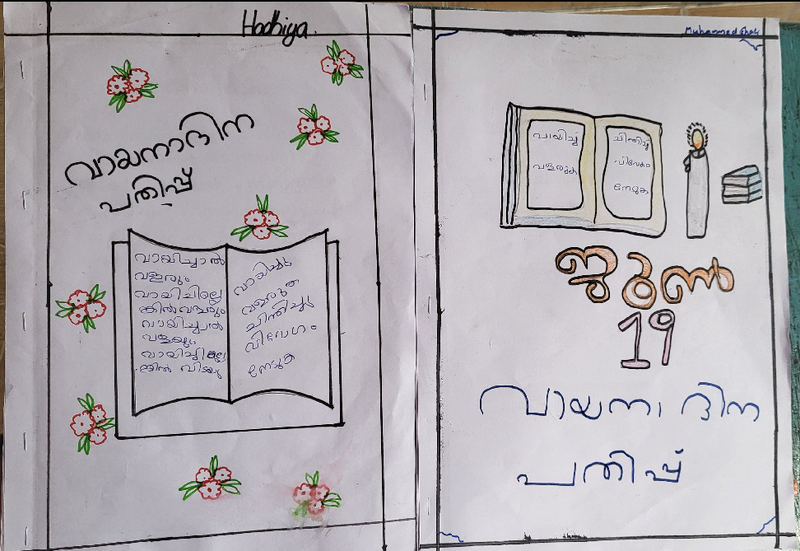 Hadhiya.
വായനാദിന
പതിപ്പ്
വായിച്ചാൽ
വളരും
വായിച്ചില്ലെ
ങ്കിൽ വളരും
വായിച്ചാൽ
വളയും
വായിച്ചില്ലെ
ങ്കിൽ വിളയും
വായിച്ചു
വളരുക
ചിന്തിച്ചു
വിവേഗം
നേടുക
Muhammed
വായിച്ചു
വളരുക
ചിന്തിച്ചു
വിവേകം
നേടുക
ജൂൺ
19
വായനാ ദിന
പതിപ്പ്